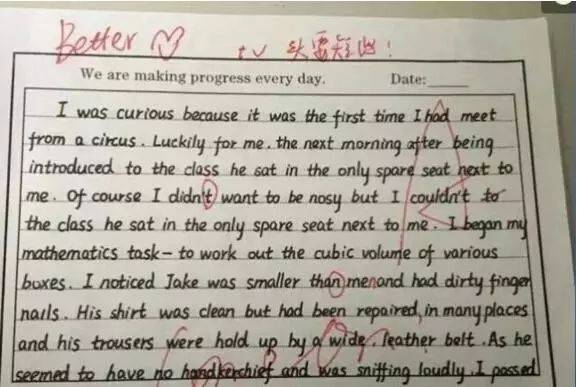 Better
tv 头要短出!
We are making progress every day. Date:
I was curious because it was the first time I had meet
from a circus. Luckily for me. the next morning after being
introduced to the class he sat in the only spare seat next to
me. Of course I didn't want to be nosy but I couldn't to
the class he sat in the only spare seat next to me. I began my
mathematics task - to work out the cubic volume of various
boxes. I noticed Jake was smaller than menand had dirty finger
nails. His shirt was clean but had been repaired, in many places
and his trousers were hold up by a wide, leather belt. As he
seemed to have no handkerchief and was sniffing loudly. I passed